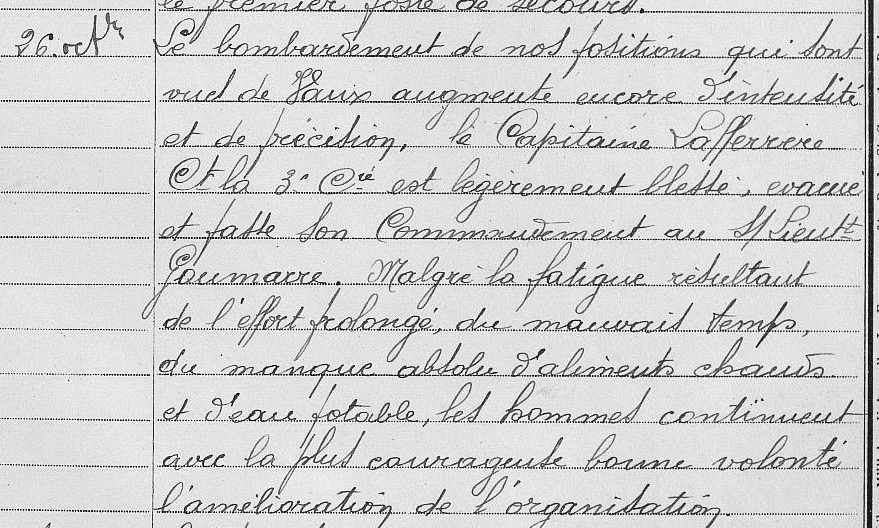 le premier poste de secours.
26. octbre Le bombardement de nos positions qui sont
sud de Vaux augmente encore d'intensité
et de précision, le Capitaine Lafferrère
Ct la 3e Cie est légèrement blessé, evacué
et passe son Commandement au S/Lieutt
Goumarre. Malgré la fatigue résultant
de l'effort prolongé, du mauvais temps,
du manque absolu d'aliments chauds
et d'eau potable, les hommes continuent
avec la plus courageuse bonne volonté
l'amélioration de l'organisation.